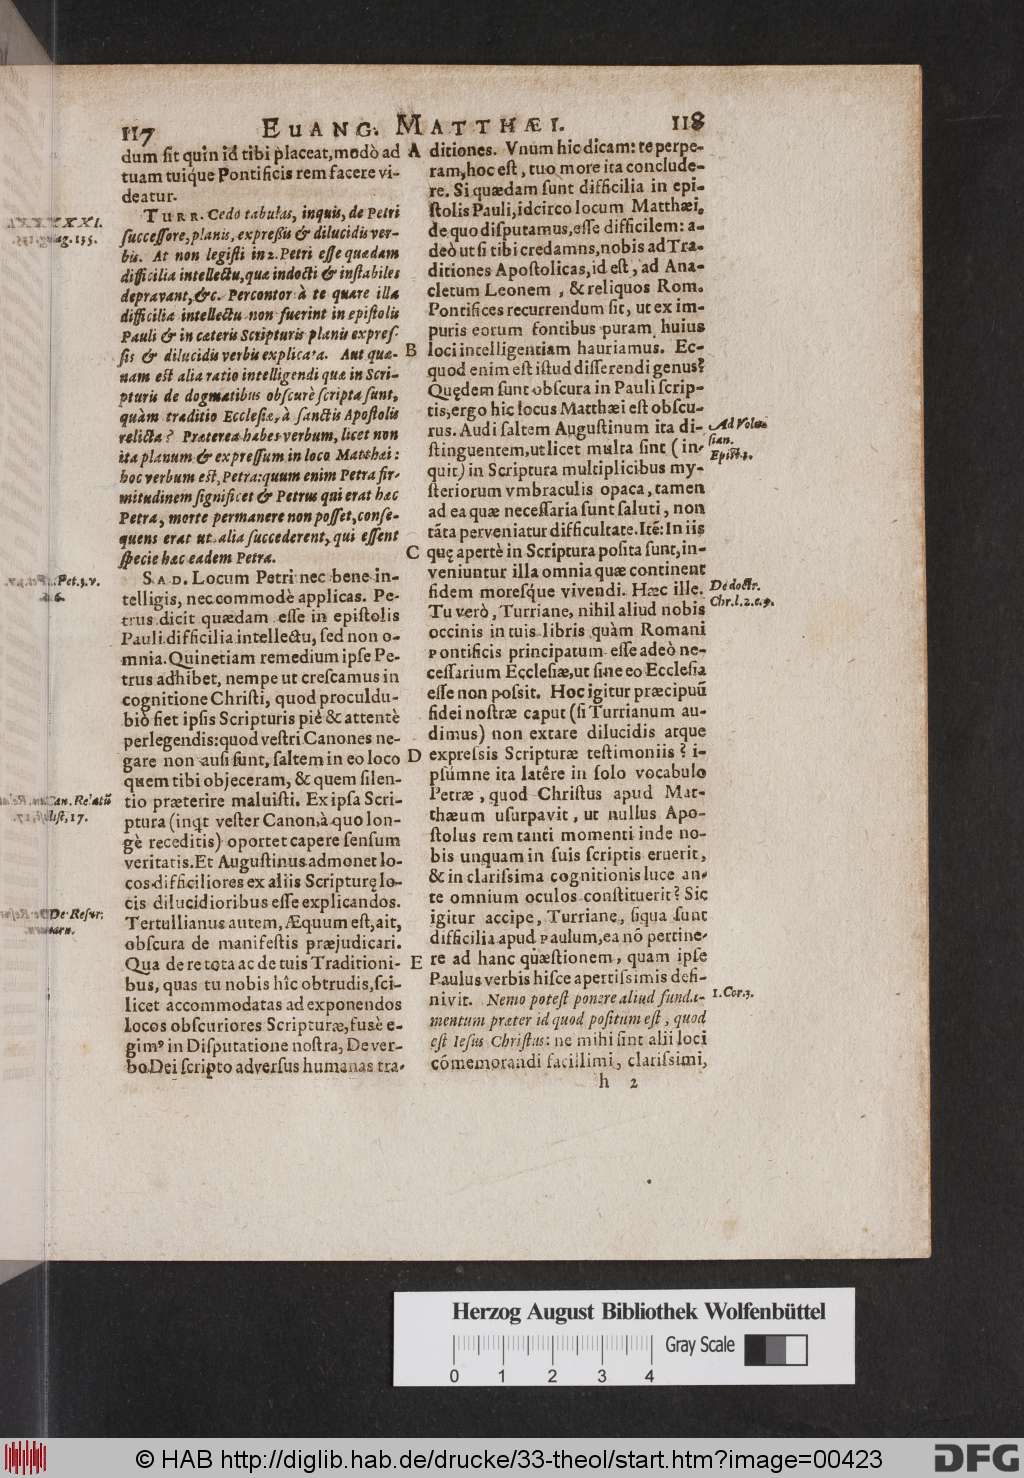 117 EUANG. MATTHÆI. 118
dum sit quin id tibi placeat, modò ad
tuam tuique Pontificis rem facere vi-
deatur.
TURR. Cedo tabulas, inquis, de Petri
successore, planis, expreßis & dilucidis ver-
bis. At non legisti in 2. Petri esse quædam
difficilia intellectu, quæ indocti & instabiles
depravant, &c. Percontor à te quare illa
difficilia intellectu non fuerint in epistolis
Pauli & in cæteris Scripturis planis expres-
sis & dilucidis verbis explicata. Aut quæ-
nam est alia ratio intelligendi quæ in Scri-
pturis de dogmatibus obscurè scripta sunt,
quàm traditio Ecclesiæ, à sanctis Apostolis
relicta? Præterea habes verbum, licet non
ita planum & expressum in loco Matthæi:
hoc verbum est, Petra: quum enim Petra fir-
mitudinem significet & Petrus qui erat hæc
Petra, morte permanere non posset, conse-
quens erat ut alia succederent, qui essent
specie hæc eadem Petra.
SAD. Locum Petri nec bene in-
telligis, nec commodè applicas. Pe-
trus dicit quædam esse in epistolis
Pauli difficilia intellectu, sed non o-
mnia. Quinetiam remedium ipse Pe-
trus adhibet, nempe ut crescamus in
cognitione Christi, quod proculdu-
biò fiet ipsis Scripturis piè & attentè
perlegendis: quod vestri Canones ne-
gare non ausi sunt, saltem in eo loco
quem tibi objeceram, & quem silen-
tio præterire maluisti. Ex ipsa Scri-
ptura (inqt vester Canon, à quo lon-
gè receditis) oportet capere sensum
veritatis. Et Augustinus admonet lo-
cos difficiliores ex aliis Scripturę lo-
cis dilucidioribus esse explicandos.
Tertullianus autem, Æquum est, ait,
obscura de manifestis præjudicari.
Qua de re tota ac de tuis Traditioni-
bus, quas tu nobis hîc obtrudis, sci-
licet accommodatas ad exponendos
locos obscuriores Scripturæ, fusè e-
gimꝰ in Disputatione nostra, De ver-
bo Dei scripto adversus humanas tra-
Pet.3.v.
Can. Relatū
De Resur:
A
B
C
D
E
ditiones. Vnum hic dicam: te perpe-
ram, hoc est, tuo more ita conclude-
re. Si quædam sunt difficilia in epi-
stolis Pauli, idcirco locum Matthæi,
de quo disputamus, esse difficilem: a-
deò ut si tibi credamus, nobis ad Tra-
ditiones Apostolicas, id est, ad Ana-
cletum Leonem, & reliquos Rom.
Pontifices recurrendum sit, ut ex im-
puris eorum fontibus puram huius
loci intelligentiam hauriamus. Ec-
quod enim est istud disserendi genus?
Quędem sunt obscura in Pauli scrip-
tis, ergo hic locus Matthæi est obscu-
rus. Audi saltem Augustinum ita di-
stinguentem, ut licet multa sint (in-
quit) in Scriptura multiplicibus my-
steriorum vmbraculis opaca, tamen
ad ea quæ necessaria sunt saluti, non
tāta perveniatur difficultate. Itē: In iis
quę apertè in Scriptura posita sunt, in-
veniuntur illa omnia quæ continent
fidem moresque vivendi. Hæc ille.
Tu verò, Turriane, nihil aliud nobis
occinis in tuis libris quàm Romani
Pontificis principatum esse adeò ne-
cessarium Ecclesiæ, ut sine eo Ecclesia
esse non possit. Hoc igitur præcipuū
fidei nostræ caput (si Turrianum au-
dimus) non extare dilucidis atque
expressis Scripturæ testimoniis? i-
psúmne ita latêre in solo vocabulo
Petræ, quod Christus apud Mat-
thæum usurpavit, ut nullus Apo-
stolus rem tanti momenti inde no-
bis unquam in suis scriptis eruerit,
& in clarissima cognitionis luce an-
te omnium oculos constituerit? Sic
igitur accipe, Turriane, siqua sunt
difficilia apud Paulum, ea nō pertine-
re ad hanc quæstionem, quam ipse
Paulus verbis hisce apertissimis defi-
nivit. Nemo potest ponere aliud funda-
mentum præter id quod positum est, quod
est Iesus Christus: ne mihi sint alii loci
cómemorandi facillimi, clarissimi,
h 2
Ad Volu-
sian.
Epist.3.
De doctr.
Chr.l.2.c.9.
1.Cor.3.
Herzog August Bibliothek Wolfenbüttel
0 1 2 3 4
Gray Scale
© HAB http://diglib.hab.de/drucke/33-theol/start.htm?image=00423
DFG